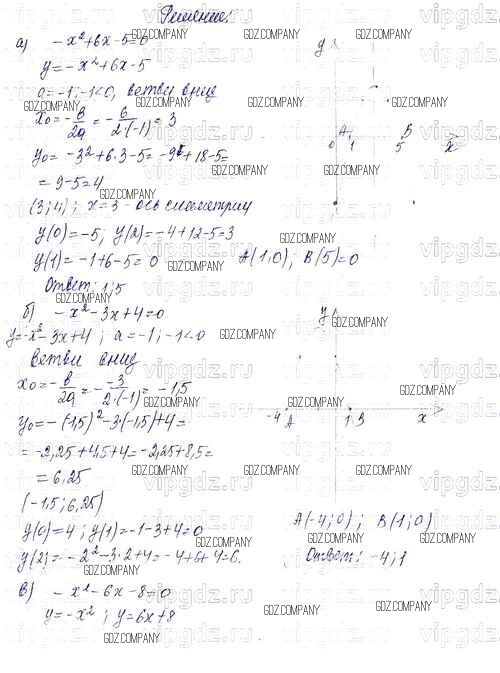 Решение:
а) -x²+6x-5=0
y=-x²+6x-5
a=-1; -1<0, ветви вниз
x₀=-b/2a=-6/2·(-1)=3
y₀=-3²+6·3-5=-9+18-5=
=9-5=4
(3;4); x=3-ось симметрии
y(0)=-5; y(2)=-4+12-5=3
y(1)=-1+6-5=0 A(1;0); B(5)=0
Ответ: 1;5
y A 1 B 5 x 0
б) -x²-3x+4=0
y=-x²-3x+4; a=-1; -1<0
ветви вниз
x₀=-b/2a=--3/2·(-1)=-1,5
y₀=-(-1,5)²-3·(-1,5)+4=
=-2,25+4,5+4=-2,25+8,5=
=6,25
(-1,5;6,25)
y(0)=4; y(1)=-1-3+4=0
y(2)=-2²-3·2+4=-4+6+4=6.
y -4 A 1 B x
A(-4;0); B(1;0)
Ответ: -4;1
в) -x²-6x-8=0
y=-x²; y=6x+8
GDZ.COMPANY
vipgdz.ru